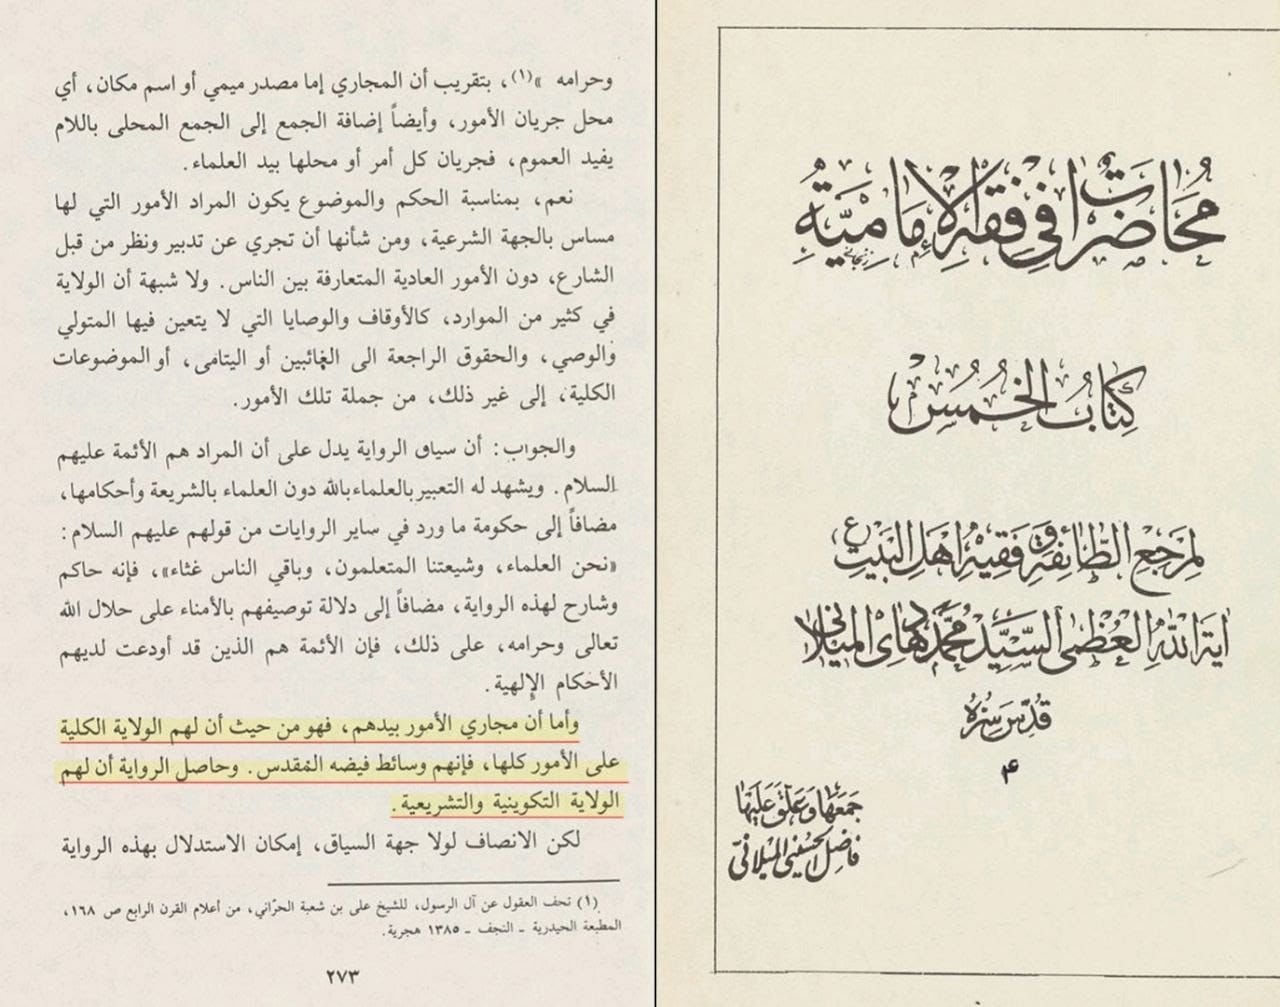 وحرامه »(١)، بتقريب أن المجاري إما مصدر ميمي أو اسم مكان، أي
محل جريان الأمور، وأيضاً إضافة الجمع إلى الجمع المحلى باللام
يفيد العموم، فجريان كل أمر أو محلها بيد العلماء.
نعم، بمناسبة الحكم والموضوع يكون المراد الأمور التي لها
مساس بالجهة الشرعية، ومن شأنها أن تجري عن تدبير ونظر من قبل
الشارع، دون الأمور العادية المتعارفة بين الناس. ولا شبهة أن الولاية
في كثير من الموارد، كالأوقاف والوصايا التي لا يتعين فيها المتولي
والوصي، والحقوق الراجعة الى الغائبين أو اليتامى، أو الموضوعات
الكلية، إلى غير ذلك، من جملة تلك الأمور.
والجواب: أن سياق الرواية يدل على أن المراد هم الأئمة عليهم
السلام. ويشهد له التعبير بالعلماء بالله دون العلماء بالشريعة وأحكامها،
مضافاً إلى حكومة ما ورد في ساير الروايات من قولهم عليهم السلام:
«نحن العلماء، وشيعتنا المتعلمون، وباقي الناس غثاء»، فإنه حاكم
وشارح لهذه الرواية، مضافاً إلى دلالة توصيفهم بالأمناء على حلال الله
تعالى وحرامه، على ذلك، فإن الأئمة هم الذين قد أودعت لديهم
الأحكام الإلهية.
وأما أن مجاري الأمور بيدهم، فهو من حيث أن لهم الولاية الكلية
على الأمور كلها، فإنهم وسائط فيضه المقدس. وحاصل الرواية أن لهم
الولاية التكوينية والتشريعية.
لكن الانصاف لولا جهة السياق، إمكان الاستدلال بهذه الرواية
(١) تحف العقول عن آل الرسول، للشيخ على بن شعبة الحرّاني، من أعلام القرن الرابع ص ١٦٨،
المطبعة الحيدرية ـ النجف ـ ١٣٨٥ هجرية.
٢٧٣
مُحَاضَراتٌ فِي فِقْهِ الإِمَامِيَّةِ
كِتَابُ الخُمُسِ
لِمَرجَعِ الطَّائِفَةِ وَفَقِيهِ اَهْلِ البَيْتِ ع
آيَةِ اللهِ العُظْمى السَّيِّد مُحَمَّد هَادِي المِيلَانِي
قُدِّسَ سِرُّهُ
٤
جَمَعَهَا وَعَلَّقَ عَلَيْهَا
فَاضِل الحُسَيْني المِيلَانِيّ